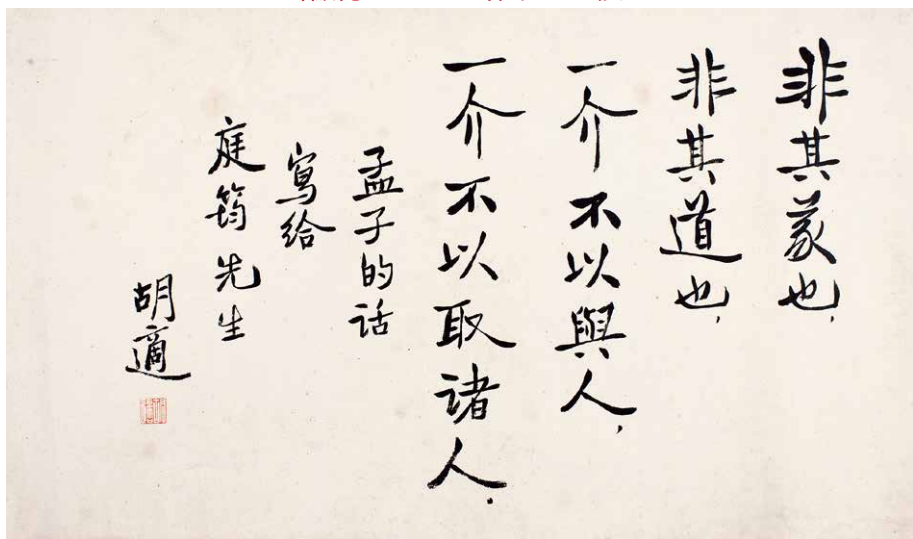 非其義也，
非其道也，
一介不以與人，
一介不以取諸人．
孟子的话
寫给
庭筠先生
胡適